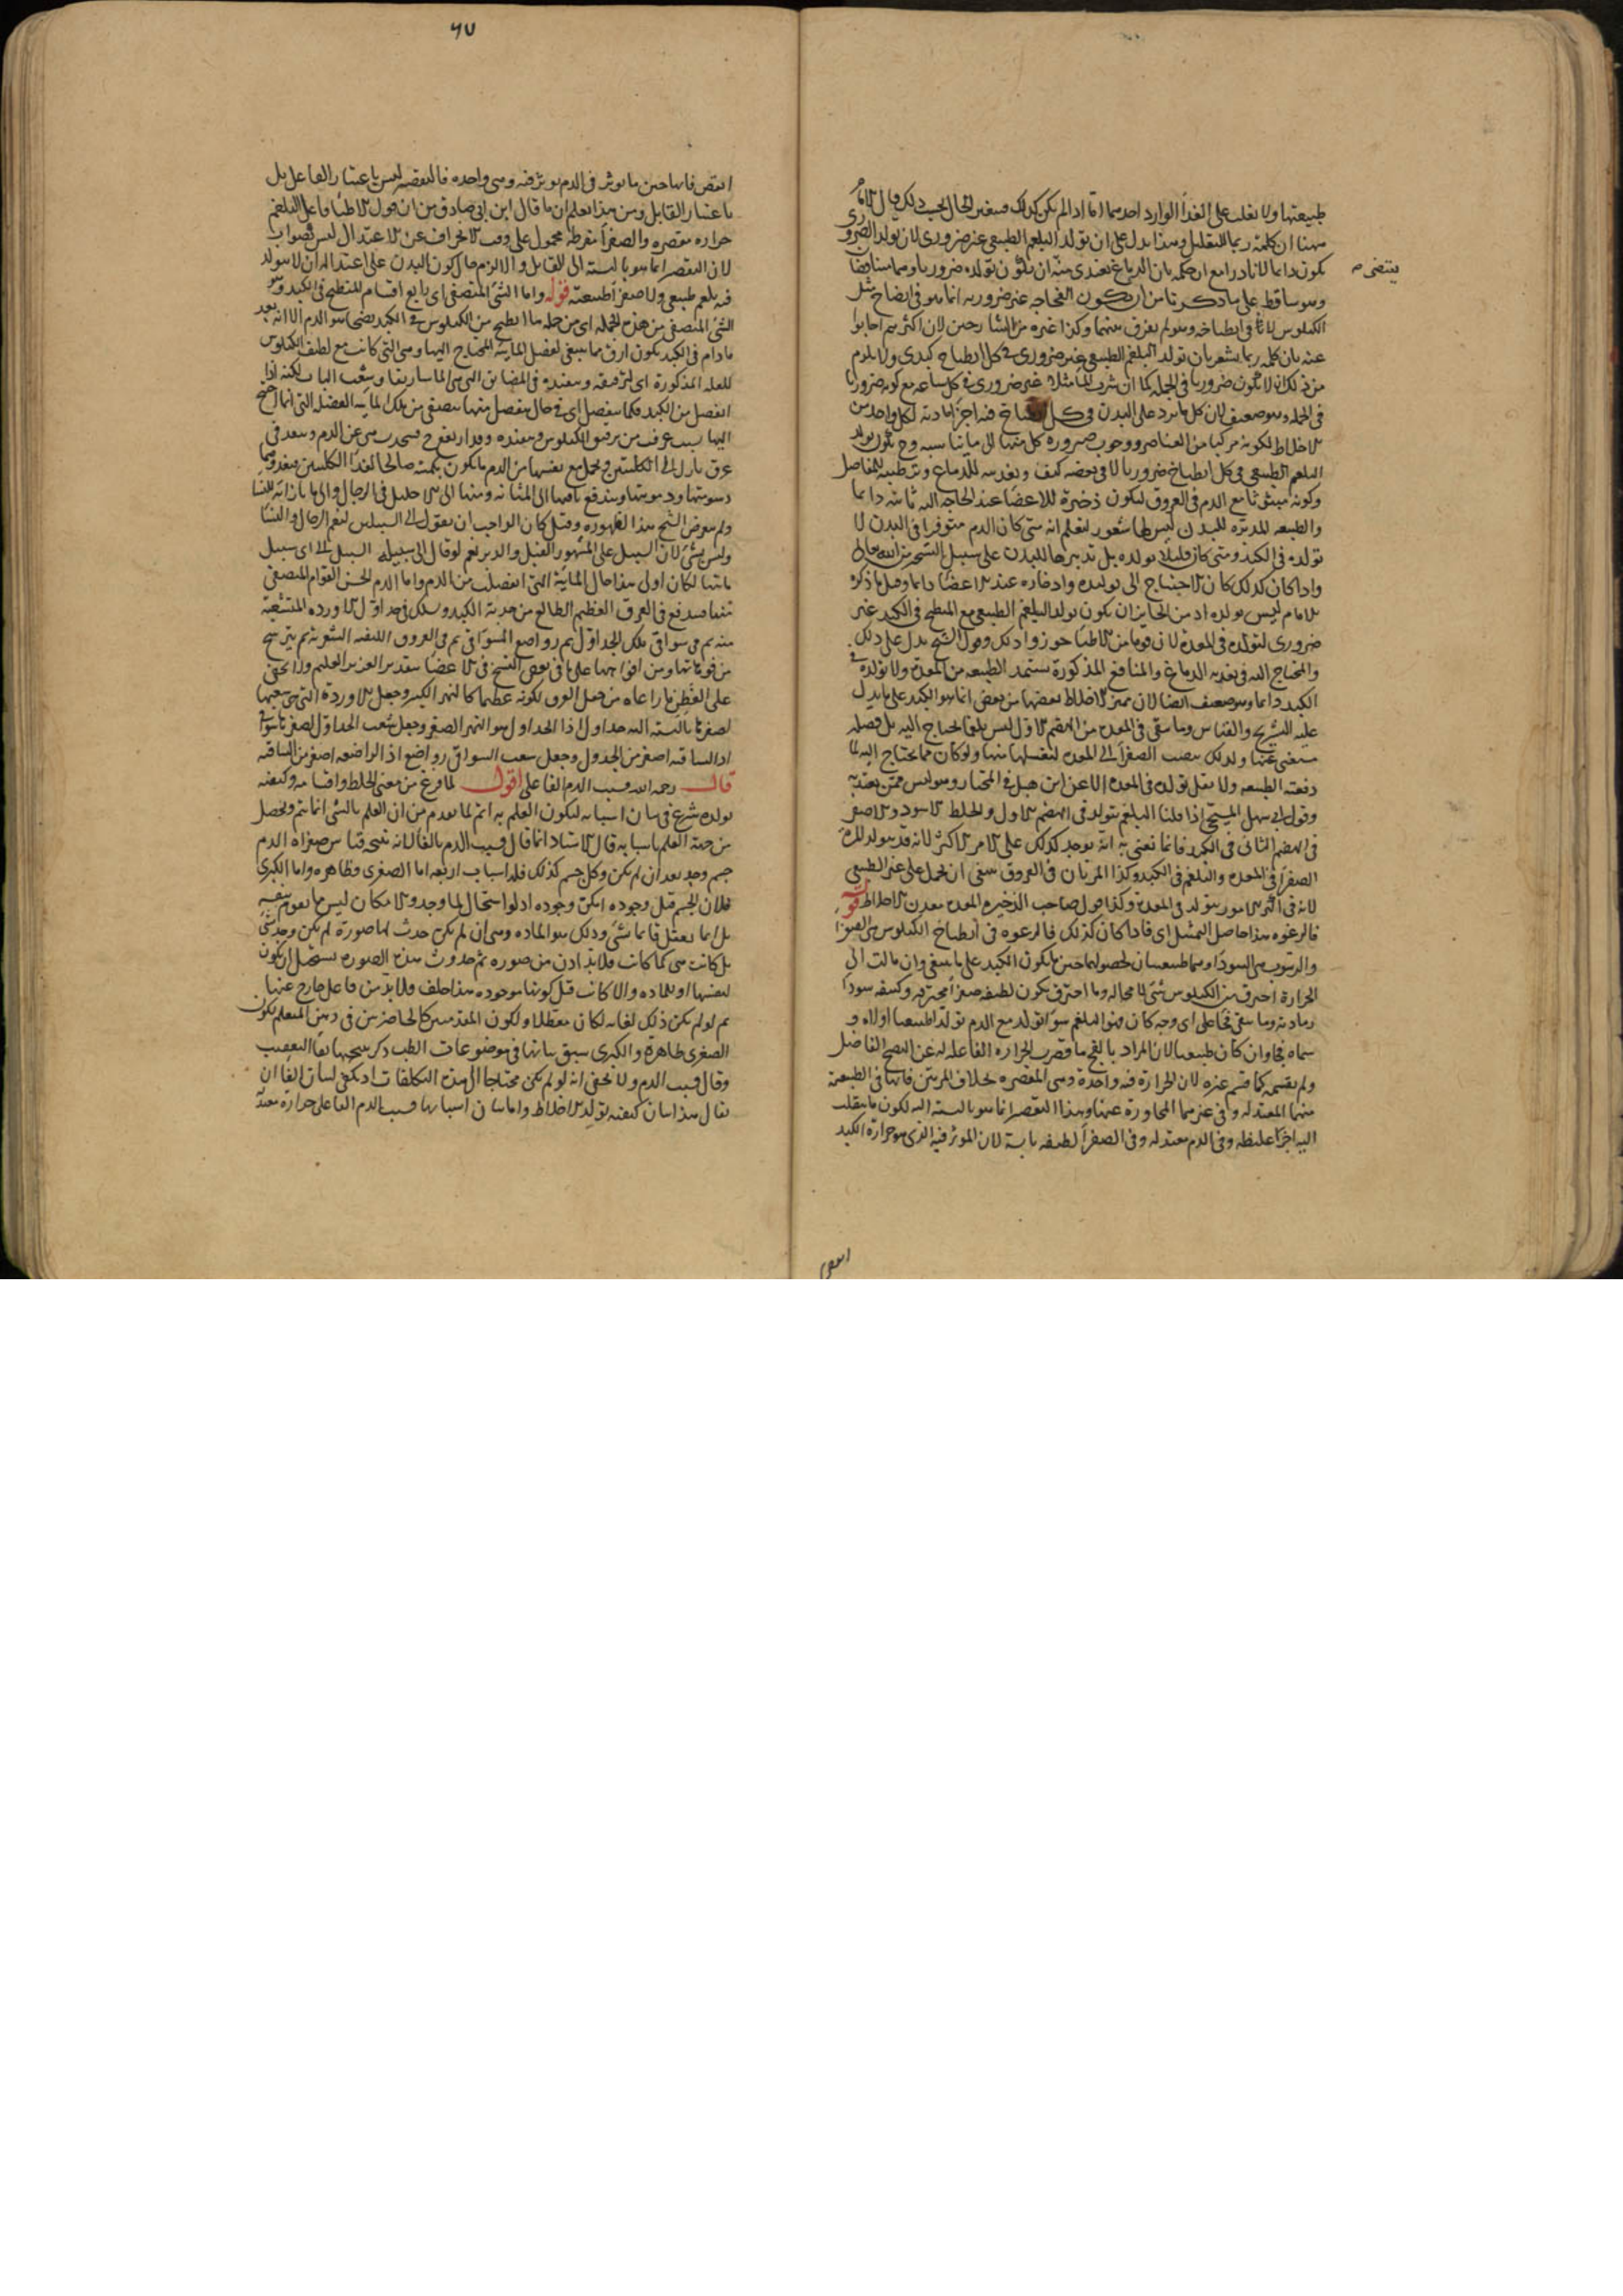 طبيعتها ولا تغلب على الغذا الوارد احديهما اما اذا لم يكن كذلك فيتغير الحال بحسب ذلك قال الامام
ههنا ان كلمة ربما للتقليل وهذا يدل على ان تولد البلغم الطبيعى غير ضرورى لان تولد الضرورى
يكون دايما لا نادرا مع ان حكمه بان الدماغ يغتذى منه ان يكون تولده ضروريا وهما متناقضان
يقتضى صح
وهو ساقط على ما ذكرنا من ان يكون الفجاجة غير ضرورية انما هو فى انضاج مثل
الكيلوس لا فى انطباخه وهو لم يفرق بينهما وكذا غيره من الشارحين لان اكثرهم اجابوا
عنه بان كلمة ربما يشعر بان تولد البلغم الطبيعى غير ضرورى فى كل انطباخ كبدى ولا يلزم
من ذلك ان لا يكون ضروريا فى الجملة كما ان شرب الما مثلا غير ضرورى فى كل ساعة مع كونه ضروريا
فى الجملة وهو ضعيف لان كل ما يرد على البدن فى كل انطباخ فيه اجزا مادية لكل واحد من
الاخلاط لكونه مركبا من العناصر ووجوب صيرورة كل منها الى ما يناسبه وح يكون تولد
البلغم الطبيعى فى كل انطباخ ضروريا لا فى بعضه كيف وتغذيته للدماغ وترطيبه للمفاصل
وكونه مبثوثا مع الدم فى العروق ليكون ذخيرة للاعضا عند الحاجة اليه ثابتة دايما
والطبيعة المدبرة للبدن ليس لها شعور لتعلم انه متى كان الدم متوفرا فى البدن لا
تولده فى الكبد ومتى كان قليلا تولده بل تدبيرها للبدن على سبيل التسخير من الله تعالى
واذا كان كذلك كان الاحتياج الى توليده وادخاره عند الاعضا دايما وقيل ما ذكره
الامام ليس تولده اذ من الجايز ان يكون تولد البلغم الطبيعى مع المنطبخ فى الكبد غير
ضرورى لتولده فى المعدة لان قوما من الاطبا جوزوا ذلك وقول الشيخ يدل على ذلك
والمحتاج اليه فى تغذية الدماغ والمنافع المذكورة تستمد الطبيعة من المعدة ولا تولده فى
الكبد دايما وهو ضعيف ايضا لان تميز الاخلاط بعضها من بعض انما هو الكبد على ما يدل
عليه التشريح والقياس وما يبقى فى المعدة من الهضم الاول ليس بلغما يحتاج اليه بل فضلة
مستغنى عنها ولذلك ينصب الصفرا الى المعدة لتغسلها منها ولو كان مما يحتاج اليه لما
دفعته الطبيعة ولا نقل تولده فى المعدة الا عن ابن هبل فى المختار وهو ليس ممن يعتد به
وقول ابى سهل المسيحى اذا قلنا البلغم يتولد فى الهضم الاول والخلط الاسود والاصفر
فى الهضم الثانى فى الكبد فانما نعنى به انه يوجد كذلك على الامر الاكثر لانه قد يتولد المرة
الصفرا فى المعدة والبلغم فى الكبد وكذا المرتان فى العروق ينبغى ان يحمل على غير الطبيعى
لانه فى اكثر الامور يتولد فى المعدة وكذا قول صاحب الذخيرة المعدة معدن الاخلاط قوله
فالرغوه هذا حاصل التمثيل اى فاذا كان كذلك فالرغوه فى انطباخ الكيلوس هى الصفرا
والرسوب هى السودا وهما طبيعيان لحصولهما حين ما يكون الكبد على ما ينبغى وان مالت الى
الحرارة احترق من الكيلوس شئ لا محالة وما احترق يكون لطيفه صفرا محترقة وكثيفه سودا
رمادية وما بقى فجا على اى وجه كان فهو البلغم سوا تولد مع الدم تولدا طبيعيا اولا و
سماه فجا وان كان طبيعيا لان المراد بالفج ما قصرت الحرارة الفاعلة له عن النضج الفاضل
ولم يقسمه كما قسم غيره لان الحرارة فيه واحدة وهى المقصرة بخلاف المرتين فانها فى الطبيعة
منهما المعتدلة وفى غيرهما المجاوزة عنها وهذا التقصير انما هو بالنسبة اليه لكون ما ينقلب
اليه اجزا غليظة وفى الدم معتدلة وفى الصفرا لطيفة يابسة لان الموثر فيه الذى هو حرارة الكبد
انقص
٦٧
انقص فانها حين ما توثر فى الدم توثر فيه وهى واحدة فالتقصير ليس باعتبار الفاعل بل
باعتبار القابل ومن هذا يعلم ان ما قال ابن ابى صادق من ان قول الاطبا فاعل البلغم
حرارة مقصرة والصفرا مفرطة محمول على وقت الانحراف عن الاعتدال ليس بصواب
لان التقصير انما هو بالنسبة الى القابل والا لزم حال كون البدن على اعتداله ان لا يتولد
فيه بلغم طبيعى ولا صفرا طبيعية قوله واما الشئ المتصفى اى رابع اقسام المنطبخ فى الكبد وهو
الشئ المتصفى من هذه الجملة اى من جملة ما انطبخ من الكيلوس فى الكبد نضجا هو الدم الا انه بعد
ما دام فى الكبد يكون ارق مما ينبغى لفضل المائية المحتاج اليها وهى التى كانت مع لطيف الكيلوس
للعلة المذكورة اى لترقيقه وتنفيذه فى المضايق التى هى الماساريقا وشعب الباب لكنه اذا
انفصل من الكبد فكما ينفصل اى فى حال ينفصل منها يتصفى من تلك المائية الفضلية التى انما احتيج
اليها بسبب عرف من ترقيق الكيلوس وتنفيذه وقد ارتفع ح فتجذب هى عن الدم وتنفذ فى
عرق نازل الى الكليتين وتحمل مع نفسها من الدم ما يكون بكميته صالحا لغذا الكليتين فيغذوهما
دسومتها ودمويتها ويندفع باقيها الى المثانة ومنها الى الاحليل فى الرجال والى ما بازائه للنسا
ولم يتعرض الشيخ بهذا لظهوره وقيل كان الواجب ان يقول الى السبيلين ليعم الرجال والنسا
وليس بشئ لان السبيل على المشهور القبل والدبر نعم لو قال الى سبيله السبيل الى اى سبيل
ماتيا لكان اولى هذا حال المائية التى انفصلت من الدم واما الدم الحسن القوام المتصفى
منها فيندفع فى العرق العظيم الطالع من حدبة الكبد ويسلك فى جداول الاوردة المتشعبة
منه ثم فى سواقى تلك الجداول ثم رواضع السواقى ثم فى العروق الليفية الشعرية ثم يترشح
من فوهاتها ومن افواهها على ما فى بعض النسخ فى الاعضا بتقدير العزيز العليم ولا يخفى
على الفطن ما راعاه من جعل العرق لكونه عظيما كالنهر الكبير وجعل الاوردة التى هى شعبها
لصغرها بالنسبة اليه جداول اذ الجداول هو النهر الصغير وجعل شعب الجداول لصغرها سواقى
اذ الساقية اصغر من الجدول وجعل شعب السواقى رواضع اذ الراضعة اصغر من الساقية
قال رحمه الله وسبب الدم الفاعلى اقول لما فرغ من معنى الخلط واقسامه وكيفية
تولده شرع فى بيان اسبابه ليكون العلم به اتم لما تقدم من ان العلم بالشئ انما يتم ويحصل
من جهة العلم باسبابه قال الاستاد انما قال وسبب الدم بالفا لانه نتيجة قياس صغراه الدم
جسم وجد بعد ان لم يكن وكل جسم كذلك فله اسباب اربعة اما الصغرى فظاهرة واما الكبرى
فلان الجسم قبل وجوده امكن وجوده اذ لو استحال لما وجد والامكان ليس ما يقوم بنفسه
بل انما يعقل قايما بشئ وذلك هو المادة وهى ان لم يكن حدث لها صورة لم يكن وجد شئ
بل كانت هى كما كانت فلا بد اذن من صورة ثم حدوث هذه الصورة يستحيل ان يكون
لنفسها او للمادة والا كانت قبل كونها موجودة هذا خلف ولا بد من فاعل خارج عنها
ثم لو لم يكن ذلك لغاية لكان معطلا ولكون المقدمتين كالحاضرتين فى ذهن المتعلم لكون
الصغرى ظاهرة والكبرى سبق بيانها فى موضوعات الطب ذكر نتيجتها بفا التعقيب
وقال وسبب الدم ولا يخفى انه لو لم يكن محتاجا الى هذه التكلفات اذ يكفى لبيان الفا ان
يقال هذا بيان كيفية تولد الاخلاط واما بيان اسبابها وسبب الدم الفاعلى حرارة معتدلة